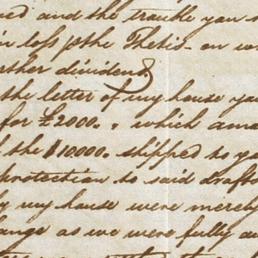 and the trouble you
in loss p the Thetis on
further dividend
the letter of my house you
for £2000.., which am
the $10000. shipped to yo
protection to said draft
my house were merely
ange as we were fully a